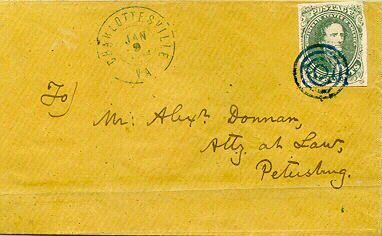 CHARLOTTESVILLE
JAN
9
VA.
POSTAGE
To)
Mr. Alexr. Donnan,
Atty. at Law,
Petersburg.